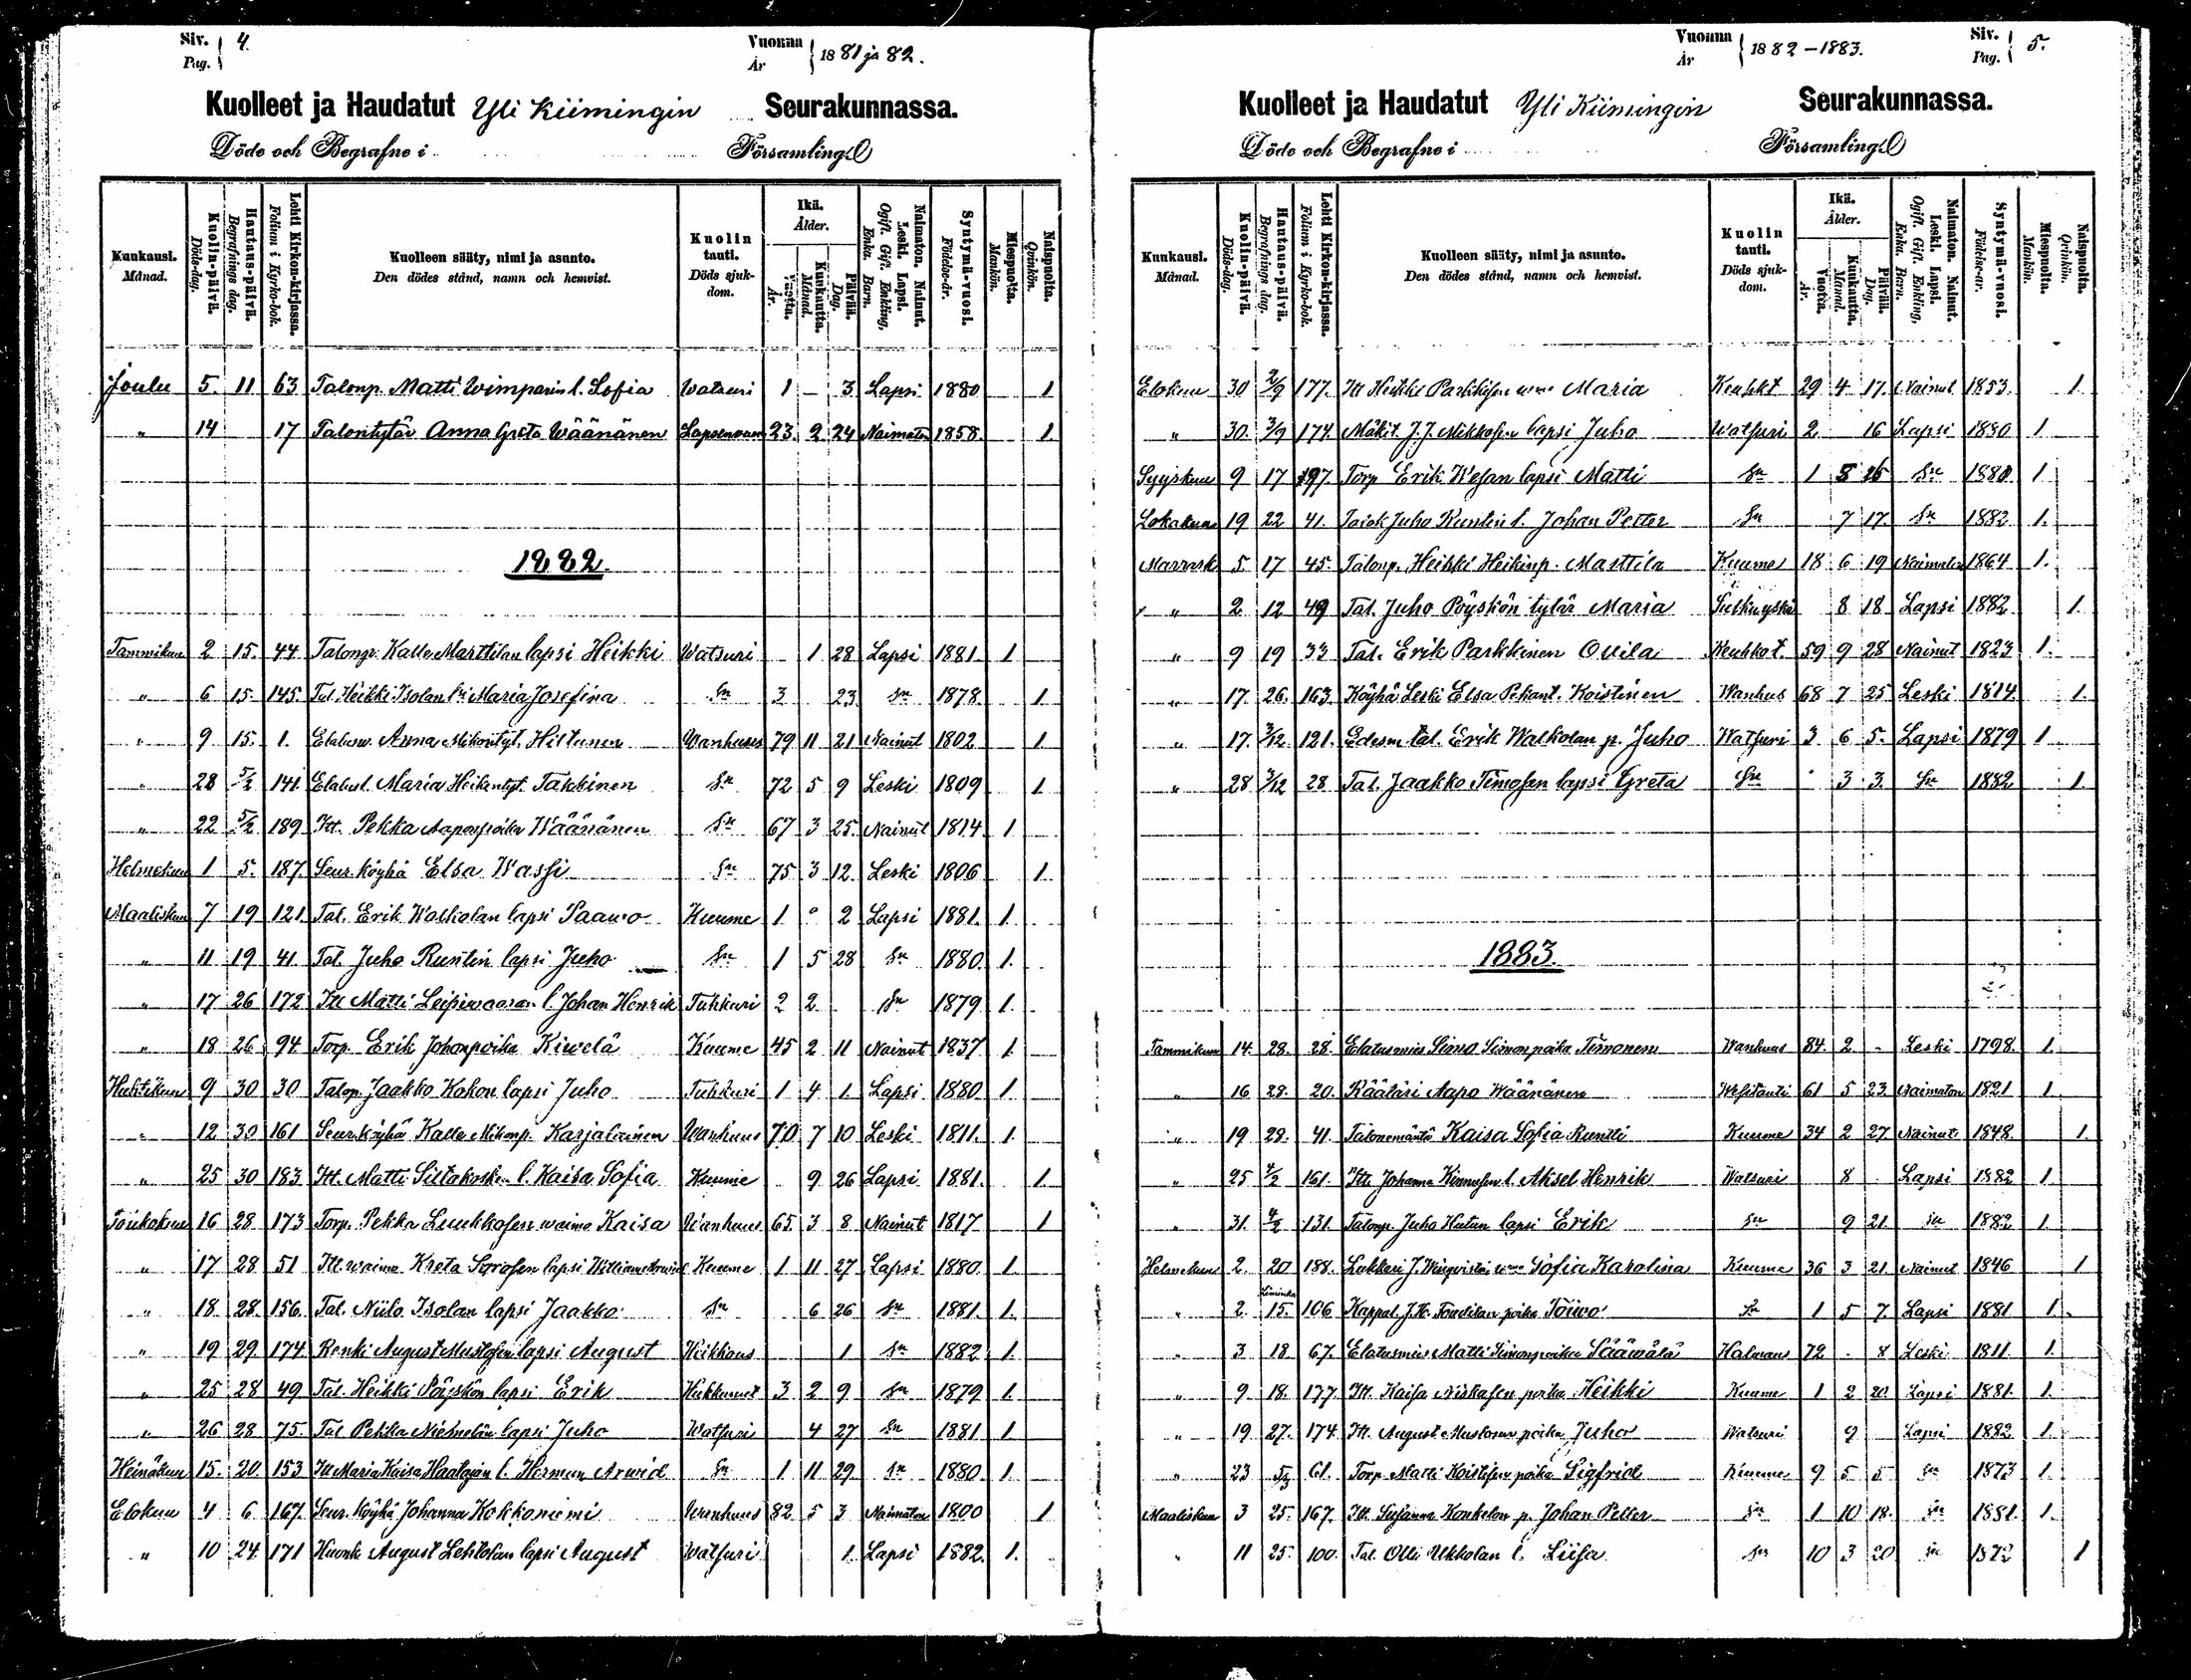 Siv. Pag. 4.
Vuonna År 1881 ja 82.
Kuolleet ja Haudatut Yli Kiimingin Seurakunnassa.
Döde och Begrafne i Församling
Kuukausi. Månad.
Kuolin-päivä. Döds-dag.
Hautaus-päivä. Begrafnings dag.
Lehti Kirkon-kirjassa. Folium i Kyrko-bok.
Kuolleen sääty, nimi ja asunto. Den dödes stånd, namn och hemvist.
Kuolin tauti. Döds sjukdom.
Ikä. Ålder.
Vuotta. År.
Kuukautta. Månad.
Päivää. Dag.
Naimaton. Nainut. Leski. Lapsi. Ogift. Gift. Enkling, Enka. Barn.
Syntymä-vuosi. Födelse-år.
Miespuolta. Mankön.
Naispuolta. Qvinkön.
Joulu 5. 11 63 Talonp. Matti Wimparin l. Sofia Watsuri 1 — 3 Lapsi 1880 1
" 14 17 Talontytär Anna Greta Wäänänen 23. 2 24 Naimaton 1858. 1.
1882.
Tammikuu 2 15. 44 Talonp. Kalle Marttilan lapsi Heikki Watsuri 1 28 Lapsi 1881. 1
" 6 15. 145. Tal. Heikki Isolan Maria Josefina Sn 3 23 Sn 1878. 1
" 9 15. 1. Anna Mikontyt. Hiltunen Wanhuus 79 11 21 Nainut 1802 1
" 28 5/2 141 Maria Heikintyt. Takkinen Sn 72 5 9 Leski 1809 1
" 22 5/2 189 Itt. Pekka Aaponpoika Wäänänen Sn 67 3 25. Nainut 1814. 1.
Helmekuu 1 5. 187. Seur. köyhä Elsa Sn 75 3 12. Leski 1806 1
Maaliskuu 7 19 121. Tal. Erik Walkolan lapsi Paawo Kuume 1 " 2 Lapsi 1881. 1.
" 11 19 41. Tal. Juho Runtin lapsi Juho Sn 1 5 28 Sn 1880. 1.
" 17 26 172 Itt Matti Leipiwaaran l. Johan Henrik Tuhkuri 2 2 Sn 1879 1.
" 18 26 94 Torp. Erik Johonpoika Kiwelä Kuume 45 2 11 Nainut 1837 1.
Huhtikuu 9 30 30 Talop. Jaakko Kokon lapsi Juho Tuhkuri 1 4 1. Lapsi 1880 1.
" 12 30 161 Seur. köyhä Kalle Mikonp. Karjalainen Wanhuus 70 7 10 Leski 1811. 1.
" 25 30 183 Itt. Matti Siltakosken l. Kaisa Sofia Kuume 9 26 Lapsi 1881. 1
Toukokuu 16 28 173 Torp. Pekka Luukkosen waimo Kaisa Wanhuus 65. 3 8. Nainut 1817 1
" 17 28 51 Itt. waimo Kreta Sorosen lapsi Kuume 1 11 27 Lapsi 1880 1.
" 18. 28 156. Tal. Niilo Isolan lapsi Jaakko Sn 6 26 Sn 1881. 1.
" 19 29 174 Renki August Mustosen lapsi August Heikkous 1 Sn 1882 1.
" 25 28 49 Tal. Heikki Pöyskön lapsi Erik 3 2 9 Sn 1879 1.
" 26 28 75. Tal Pekka Niemelän lapsi Juho Watsuri 4 27 Sn 1881 1
Heinäkuu 15. 20. 153 Itt Maria Kaisa Haatajan l. Herman Arwid Sn 1 11 29. Sn 1880. 1.
Elokuu 4 6 167. Seur. köyhä Johanna Kokkoniemi Wanhuus 82 5 3 Naimaton 1800 1
" 10 24 171 August Lehtolan lapsi August Watsuri 1. Lapsi 1882. 1.
Vuonna År 1882-1883.
Siv. Pag. 5.
Kuolleet ja Haudatut Yli Kiimingin Seurakunnassa.
Döde och Begrafne i Församling
Kuukausi. Månad.
Kuolin-päivä. Döds-dag.
Hautaus-päivä. Begrafnings dag.
Lehti Kirkon-kirjassa. Folium i Kyrko-bok.
Kuolleen sääty, nimi ja asunto. Den dödes stånd, namn och hemvist.
Kuolin tauti. Döds sjukdom.
Ikä. Ålder.
Vuotta. År.
Kuukautta. Månad.
Päivää. Dag.
Naimaton. Nainut. Leski. Lapsi. Ogift. Gift. Enkling, Enka. Barn.
Syntymä-vuosi. Födelse-år.
Miespuolta. Mankön.
Naispuolta. Qvinkön.
Elokuu 30 2/9 177. Itt Heikki Parkkisen Maria Keuhkt 29 4 17. Nainut 1853. 1.
" 30. 3/9 174. Mäkit. J. J. Mikkosen lapsi Juho Watsuri 2 16 Lapsi 1880 1.
Syyskuu 9 17 197 Torp Erik Wesan lapsi Matti Sn 1 Sn 1880 1
Lokakuu 19 22 41. Juho Runtin l. Johan Petter Sn 7 17. Sn 1882 1.
Marrask 5 17 45. Talonp. Heikki Heikinp. Marttila Kuume 18 6 19 Naimaton 1864 1.
" 2 12 49 Tal. Juho Pöyskön tytär Maria 8 18 Lapsi 1882. 1.
" 9 19 33 Tal. Erik Parkkinen Ouila Keuhkot. 59 9 28 Nainut 1823 1.
" 17. 26. 163. Köyhä Leski Elsa Koistinen Wanhus 68 7 25 Leski 1814. 1.
" 17. 3/12 121. Edesm. tal. Erik Walkolan p. Juho Watsuri 3 6 5. Lapsi 1879 1
" 28 3/12 28 Tal. Jaakko Timosen lapsi Greta Sn 3 3. Sn 1882 1.
1883.
Tammikuu 14. 28. 28. Elatusmies Simo Simonpoika Timonen Wanhuus 84. 2 - Leski 1798. 1.
" 16 28. 20. Räätäri Aapo Wäänänen Wesitauti 61 5 23. Naimaton 1821 1
" 19 28. 41. Talonemäntä Kaisa Sofia Runtti Kuume 34 2 27. Nainut 1848. 1.
" 25 4/2 161. Johanna Kinnusen l. Aksel Henrik Watsuri 8 Lapsi 1882 1
" 31. 4/2 131. Talonp. Juho Hutun lapsi Erik Sn 9 21. Sn 1882 1.
Helmekuu 2. 20 188. Lukkari J. Winqvistin Sofia Karolina Kuume 36 3 21. Nainut 1846 1
Liminka
" 2. 15. 106 Kappal. J. H. poika Toiwo Sn 1 5 7. Lapsi 1881 1.
" 3 18. 67. Elatusmies Matti Simonpoika Sääwälä Halwaus 72 - 8 Leski 1811. 1.
" 9. 18. 177. Itt. Kaisa Niskasen poika Heikki Kuume 1 2 20. Lapsi 1881. 1.
" 19 27. 174. Itt. August Mustosen poika Juho Watsuri 9 Lapsi 1882 1.
" 23 61. Torp. Matti Koistisen poika Sigfrid Kuume 9 5 5 Sn 1873 1.
Maaliskuu 3 25. 167. Itt. Susanna Konkelon p. Johan Petter Sn 1 10 18. Sn 1881. 1.
" 11 25. 100. Tal. Olli Ukkolan l. Liisa Sn 10 3 20 Sn 1872 1